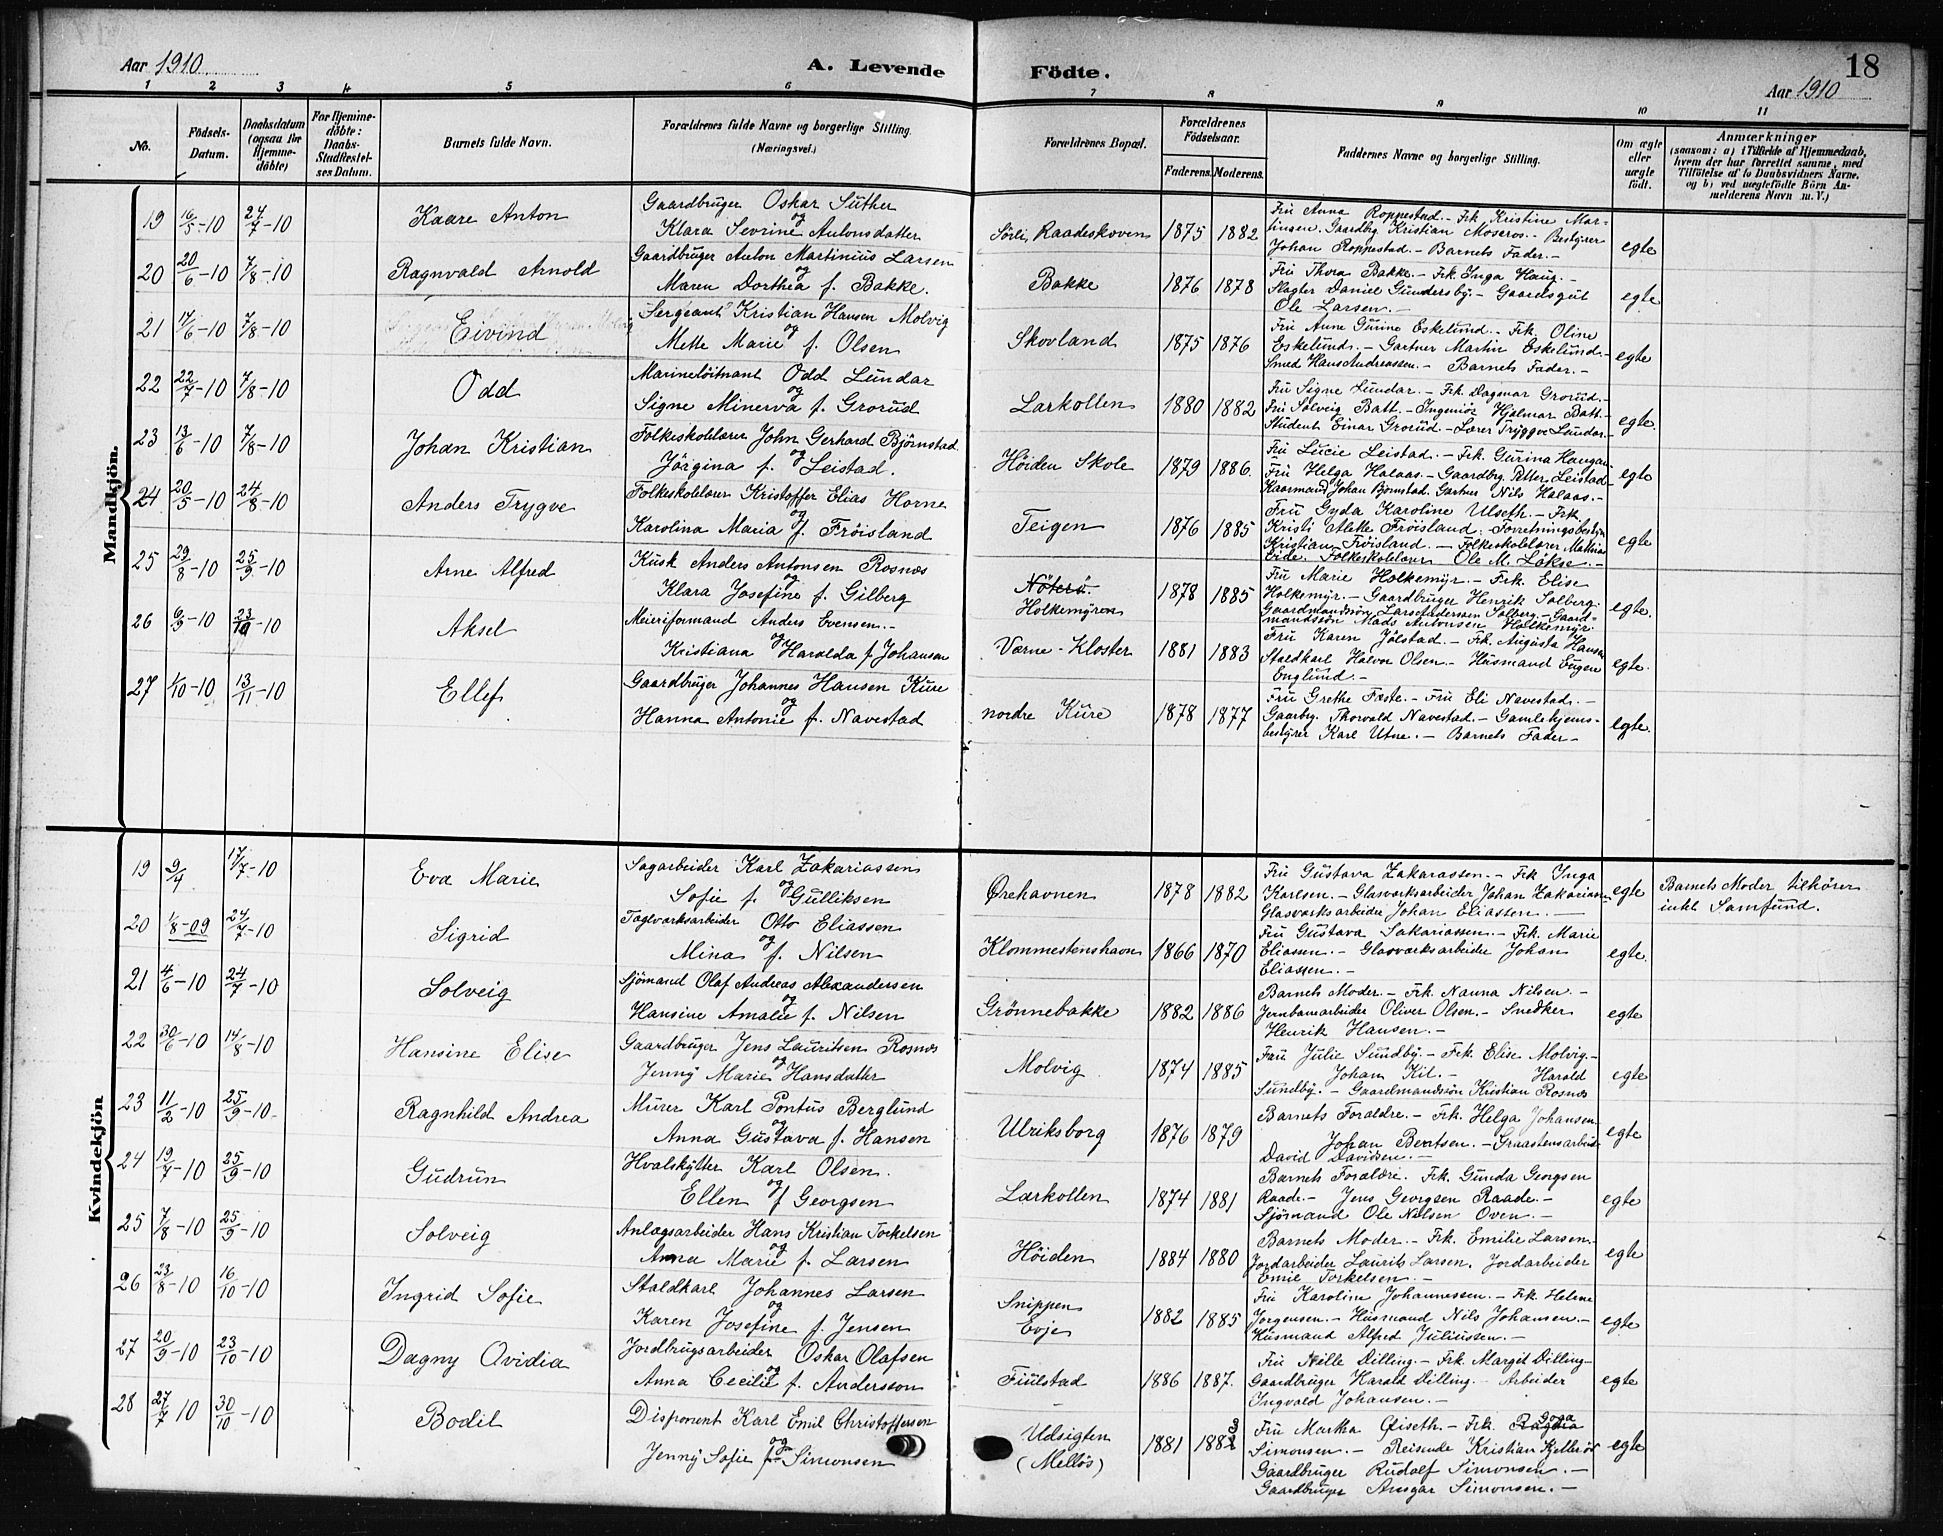 Aar 1910
A. Levende Födte.
18
Aar 1910
1 2 3 4 5 6 7 8 9 10 11
No.
Födsels-Datum.
Daabsdatum (ogsaa for Hjemme-döbte)
For Hjemme-döbte: Daabs-Stadfæstel-ses Datum.
Barnets fulde Navn.
Forældrenes fulde Navne og borgerlige Stilling. (Næringsvei.)
Forældrenes Bopæl.
Forældrenes Födselsaar.
Faderens. Moderens.
Faddernes Navne og borgerlige Stilling.
Om ægte eller uægte födt.
Anmærkninger
(saasom: a) i Tilfælde af Hjemmedaab,
hvem der har forrettet samme, med
Tilföielse af to Daabsvidners Navne.
og b) ved uægtefödte Börn An-
melderens Navn m. V.)
Mandkjön.
19 16/5-10 24/7-10 Kaare Anton
Gaardbruger Oskar Suther
og
Klara Sevrine Antonsdatter
Sörli, Raadeskoven 1875 1882
Fru Anna Roppestad. - Frk. Kristine Mar-
tinsen. Gaardbg Kristian Moseros. - Bestyrer
Johan Roppestad. - Barnets Fader. -
egte
20 20/6-10 7/8-10 Ragnvald Arnold
Gaardbruger Anton Martinius Larsen
og
Maren Dorthea f. Bakke.
Bakke 1876 1878
Fru Thora Bakke. - Frk. Inga Haug. -
Slagter Daniel Gundersby. - Gaardsgut
Ole Larsen. -
egte
21 17/6-10 7/8-10 Eivind
Sergeant Kristian Hansen Molvig
og
Mette Marie f. Olsen
Skovland 1875 1876
Fru Anne Gurine Eskelund. - Frk. Oline
Eskelund. - Gartner Martin Eskelund. -
Smed Hans Andreassen. - Barnets Fader. -
egte
22 22/7-10 7/8-10 Odd
Marinelöitnant Odd Lundar
og
Signe Minerva f. Grorud
Larkollen 1880 1882
Fru Signe Lundar. - Frk. Dagmar Grorud. -
Fru Solveig Batt. - Ingeniör Hjalmar Batt. -
Student Einar Grorud. - Lærer Tryggve Lundar. -
egte.
23 13/6-10 7/8-10 Johan Kristian
Folkeskolelærer John Gerhard Björnstad
og
Jörgina f. Leistad.
Höiden Skole 1879 1886.
Fru Lucie Leistad. - Frk. Gurina Haugan
Fru Helga Halaas. - Gaardbg. Petter Leistad
Kaarmand Johan Björnstad. Gartner Nils Halaas. -
egte
24 20/5-10 24/8-10 Anders Trygve
Folkeskolelærer Kristoffer Elias Horne
og
Karolina Maria f. Fröisland
Teigen 1876 1885
Fru Gyda Karoline Ulseth. - Frk.
Kristi Alette Fröisland. - Forretningsbestyr
Kristian Fröisland. - Folkeskolelærer Mathias
Eide. Folkeskolelærer Ole M. Lökse. -
egte
25 29/8-10 25/9-10 Arne Alfred
Kusk Anders Antonsen Rosnæs
og
Klara Josefine f. Gilberg
Nöterö.
Holkemyren 1878 1885
Fru Marie Holkemyr. - Frk. Elise
Holkemyr. - Gaardbruger Henrik Solberg.
Gaardmandssön Lars Pedersen Solberg. - Gaard-
mandssön Mads Antonsen Holkemyr.
egte.
26 9/9-10 23/10-10 Aksel
Meieriformand Anders Evensen. -
og
Kristiana Haralda f. Johansen
Værne-Kloster 1881 1883
Fru Karen Jölstad. - Frk. Augusta Hansen
Staldkarl Halvor Olsen. - Husmand Eugen
Englund. -
egte.
27 1/10-10 13/11-10 Ellef
Gaardbruger Johannes Hansen Kure
og
Hanna Antonie f. Navestad
nordre Kure 1878 1877
Fru Grethe Fæste. - Fru Eli Navestad. -
Gaarbg. Thorvald Navestad. - Gamlehjems-
bestyrer Karl Utne. - Barnets Fader -
egte.
Kvindekjön
19 9/4 17/7-10 Eva Marie
Sagarbeider Karl Zakariassen
og
Sofie f. Gulliksen
Ørehavnen 1878 1882
Fru Gustava Zakarassen. - Frk Inga
Karlsen. - Glasværksarbeider Johan Zakariassen
Glasværksarbeider Johan Eliassen. -
egte
Barnets Moder tilhører
intet Samfund.
20 1/8-09 24/7-10 Sigrid
Teglværksarbeider Otto Eliassen
og
Mina f. Nilsen
Klommestenshavn 1866 1870
Fru Gustava Sakariassen. - Frk. Marie
Eliassen. - Glasværksarbeider Johan
Eliassen. -
egte.
21 4/6-10 24/7-10 Solveig
Sjömand Olaf Andreas Alexandersen
og
Hansine Amalie f. Nilsen
Grönnebakke 1882 1886
Barnets Moder. - Frk. Nanna Nilsen. -
Jernbanearbeider Oliver Olsen. - Snedker
Henrik Hansen. -
egte
22 30/6-10 14/8-10 Hansine Elise
Gaardbruger Jens Lauritsen Rosnæs
og
Jenny Marie Hansdatter
Molvig 1874 1885
Fru Julie Sundby. - Frk. Elise Molvig. -
Johan Kil. - Harald
Sundby. - Gaardmandssön Kristian Rosnæs
egte
23 11/2-10 25/9-10 Ragnhild Andrea
Murer Karl Pontus Berglund
og
Anna Gustava f. Hansen
Ulriksborg 1876 1879
Barnets Forældre. - Frk. Helga Johansen
Johan Berntsen. - Graastensarbeid
David Davidsen. -
egte
24 19/7-10 25/9-10 Gudrun
Hvalskytter Karl Olsen.
og
Ellen f. Georgsen
Larkollen 1874 1881
Barnets Forældre. Frk. Gunda Georgsen
Raade. - Jens Georgsen Raade. -
Sjömand Ole Nilsen Oven. -
egte
25 7/8-10 25/9-10 Solveig
Anlægsarbeider Hans Kristian Torkelsen
og
Anna Marie f. Larsen
Höiden 1884 1880
Barnets Moder. - Frk. Emilie Larsen.
Jordarbeider Laurits Larsen. Jordarbeider
Emil Torkelsen. -
egte
26 23/8-10 16/10-10 Ingrid Sofie
Staldkarl Johannes Larsen
og
Karen Josefine f. Jensen
Snippen
Evje 1882 1885
Fru Karoline Johannessen. - Frk. Helene
Jörgensen. - Husmand Nils Johansen. -
Husmand Alfred Juliussen. -
egte
27 20/9-10 23/10-10 Dagny Ovidia
Jordbrugsarbeider Oskar Olafsen
og
Anna Cecilie f. Andersson
Fiulstad 1886 1887.
Fru Nille Dilling. - Frk. Margit Dilling -
Gaardbruger Harald Dilling. - Arbeider
Ingvald Johansen. -
egte
28 27/7 10 30/10-10 Bodil
Disponent Karl Emil Christoffersen
og
Jenny Sofie f. Simonsen
Udsigten
(Mellös) 1881 1883
Fru Martha Qviseth. - Frk. Ragna Goga
Simonsen. - Reisende Kristian Kjelleröd
Gaardbruger Rudolf Simonsen. -
Gaardbruger Ansgar Simonsen. -
egte